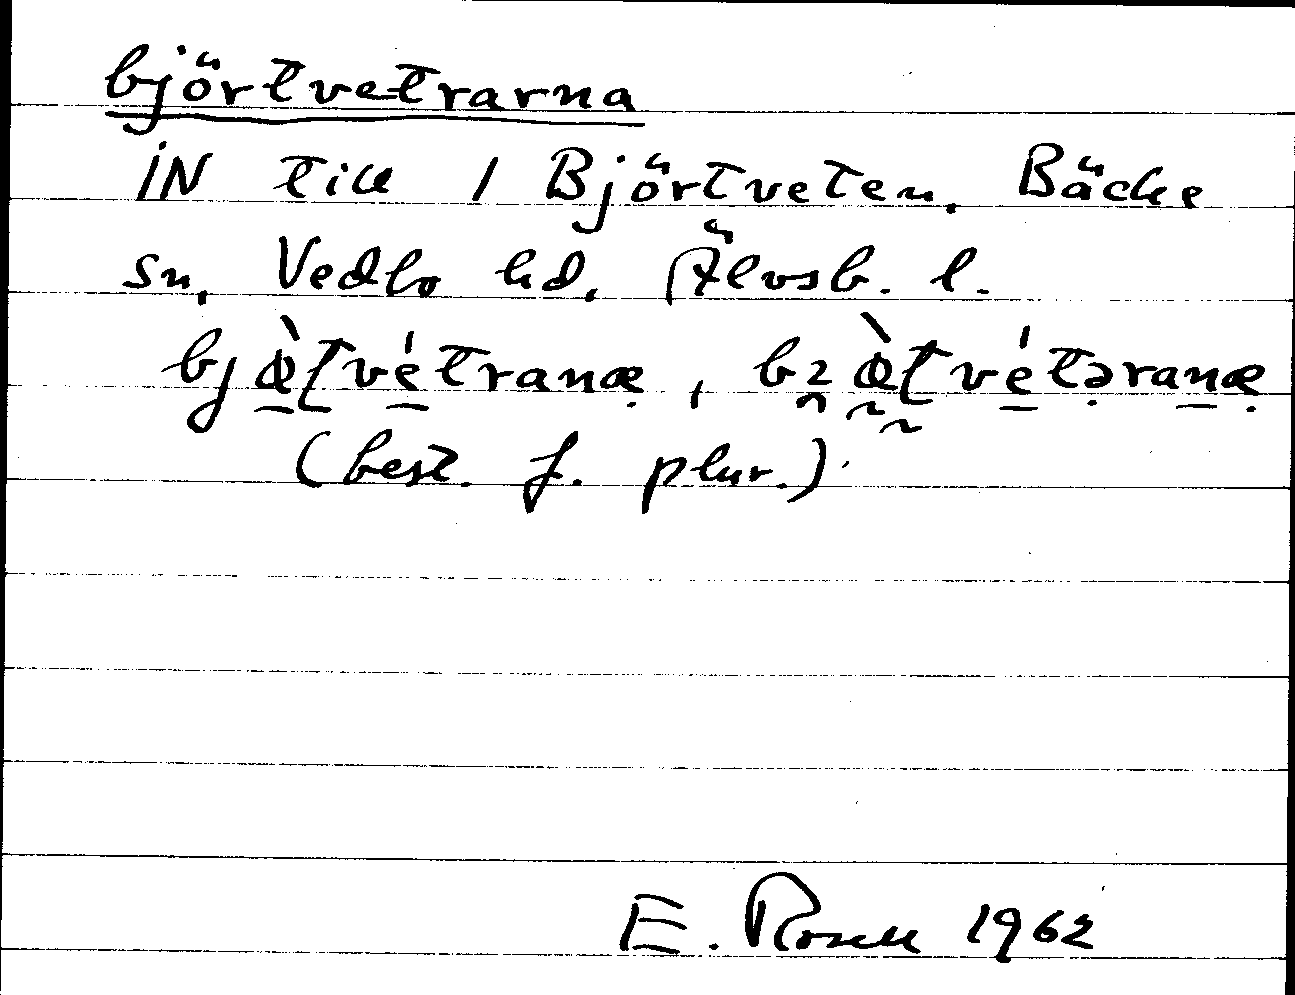 björtvetrarna
IN till 1 Björtveten, Bäcke
sn, Vedbo hd, Älvsb. l.
bjꜵ̀ʈvétranæ, bꜵ̀ʈvétəranæ
(best. f. plur.)
E. Rosell 1962